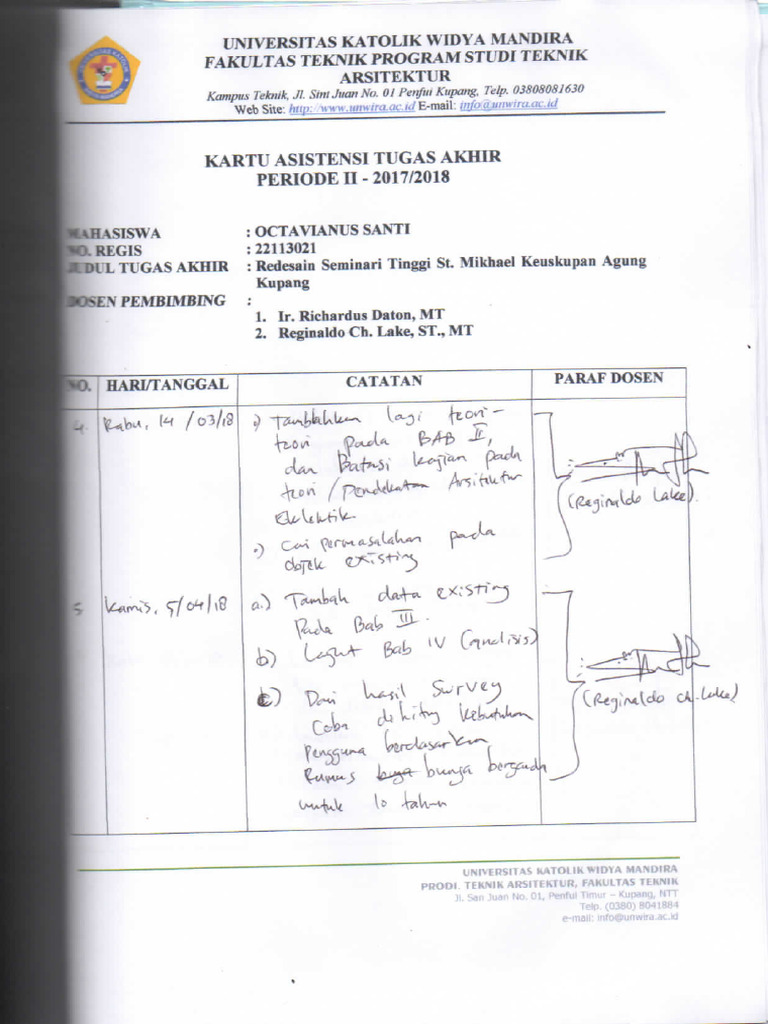 UNIVERSITAS KATOLIK WIDYA MANDIRA
FAKULTAS TEKNIK PROGRAM STUDI TEKNIK
ARSITEKTUR
Kampus Teknik, Jl. Sint Juan No. 01 Penfui Kupang, Telp. 03808081630
Web Site: http://www.unwira.ac.id E-mail: info@unwira.ac.id
KARTU ASISTENSI TUGAS AKHIR
PERIODE II - 2017/2018
MAHASISWA : OCTAVIANUS SANTI
NO. REGIS : 22113021
JUDUL TUGAS AKHIR : Redesain Seminari Tinggi St. Mikhael Keuskupan Agung
Kupang
DOSEN PEMBIMBING :
1. Ir. Richardus Daton, MT
2. Reginaldo Ch. Lake, ST., MT
NO. HARI/TANGGAL CATATAN PARAF DOSEN
4. Rabu, 14 /03/18 Tambahkan lagi teori-
teori pada BAB II,
dan Batasi kajian pada
teori/Pendekatan Arsitektur
Eklektik.
Cari permasalahan pada
objek existing
(Reginaldo Lake).
5 Kamis, 5/04/18 a.) Tambah data existing
Pada Bab III.
b) Lanjut Bab IV (analisis)
c) Dari hasil Survey
Coba dihitung kebutuhan
pengguna berdasarkan
Rumus bunga berganda
untuk 10 tahun
(Reginaldo Ch. Lake)
UNIVERSITAS KATOLIK WIDYA MANDIRA
PRODI. TEKNIK ARSITEKTUR, FAKULTAS TEKNIK
Jl. San Juan No. 01, Penfui Timur – Kupang, NTT
Telp. (0380) 8041884
e-mail: info@unwira.ac.id